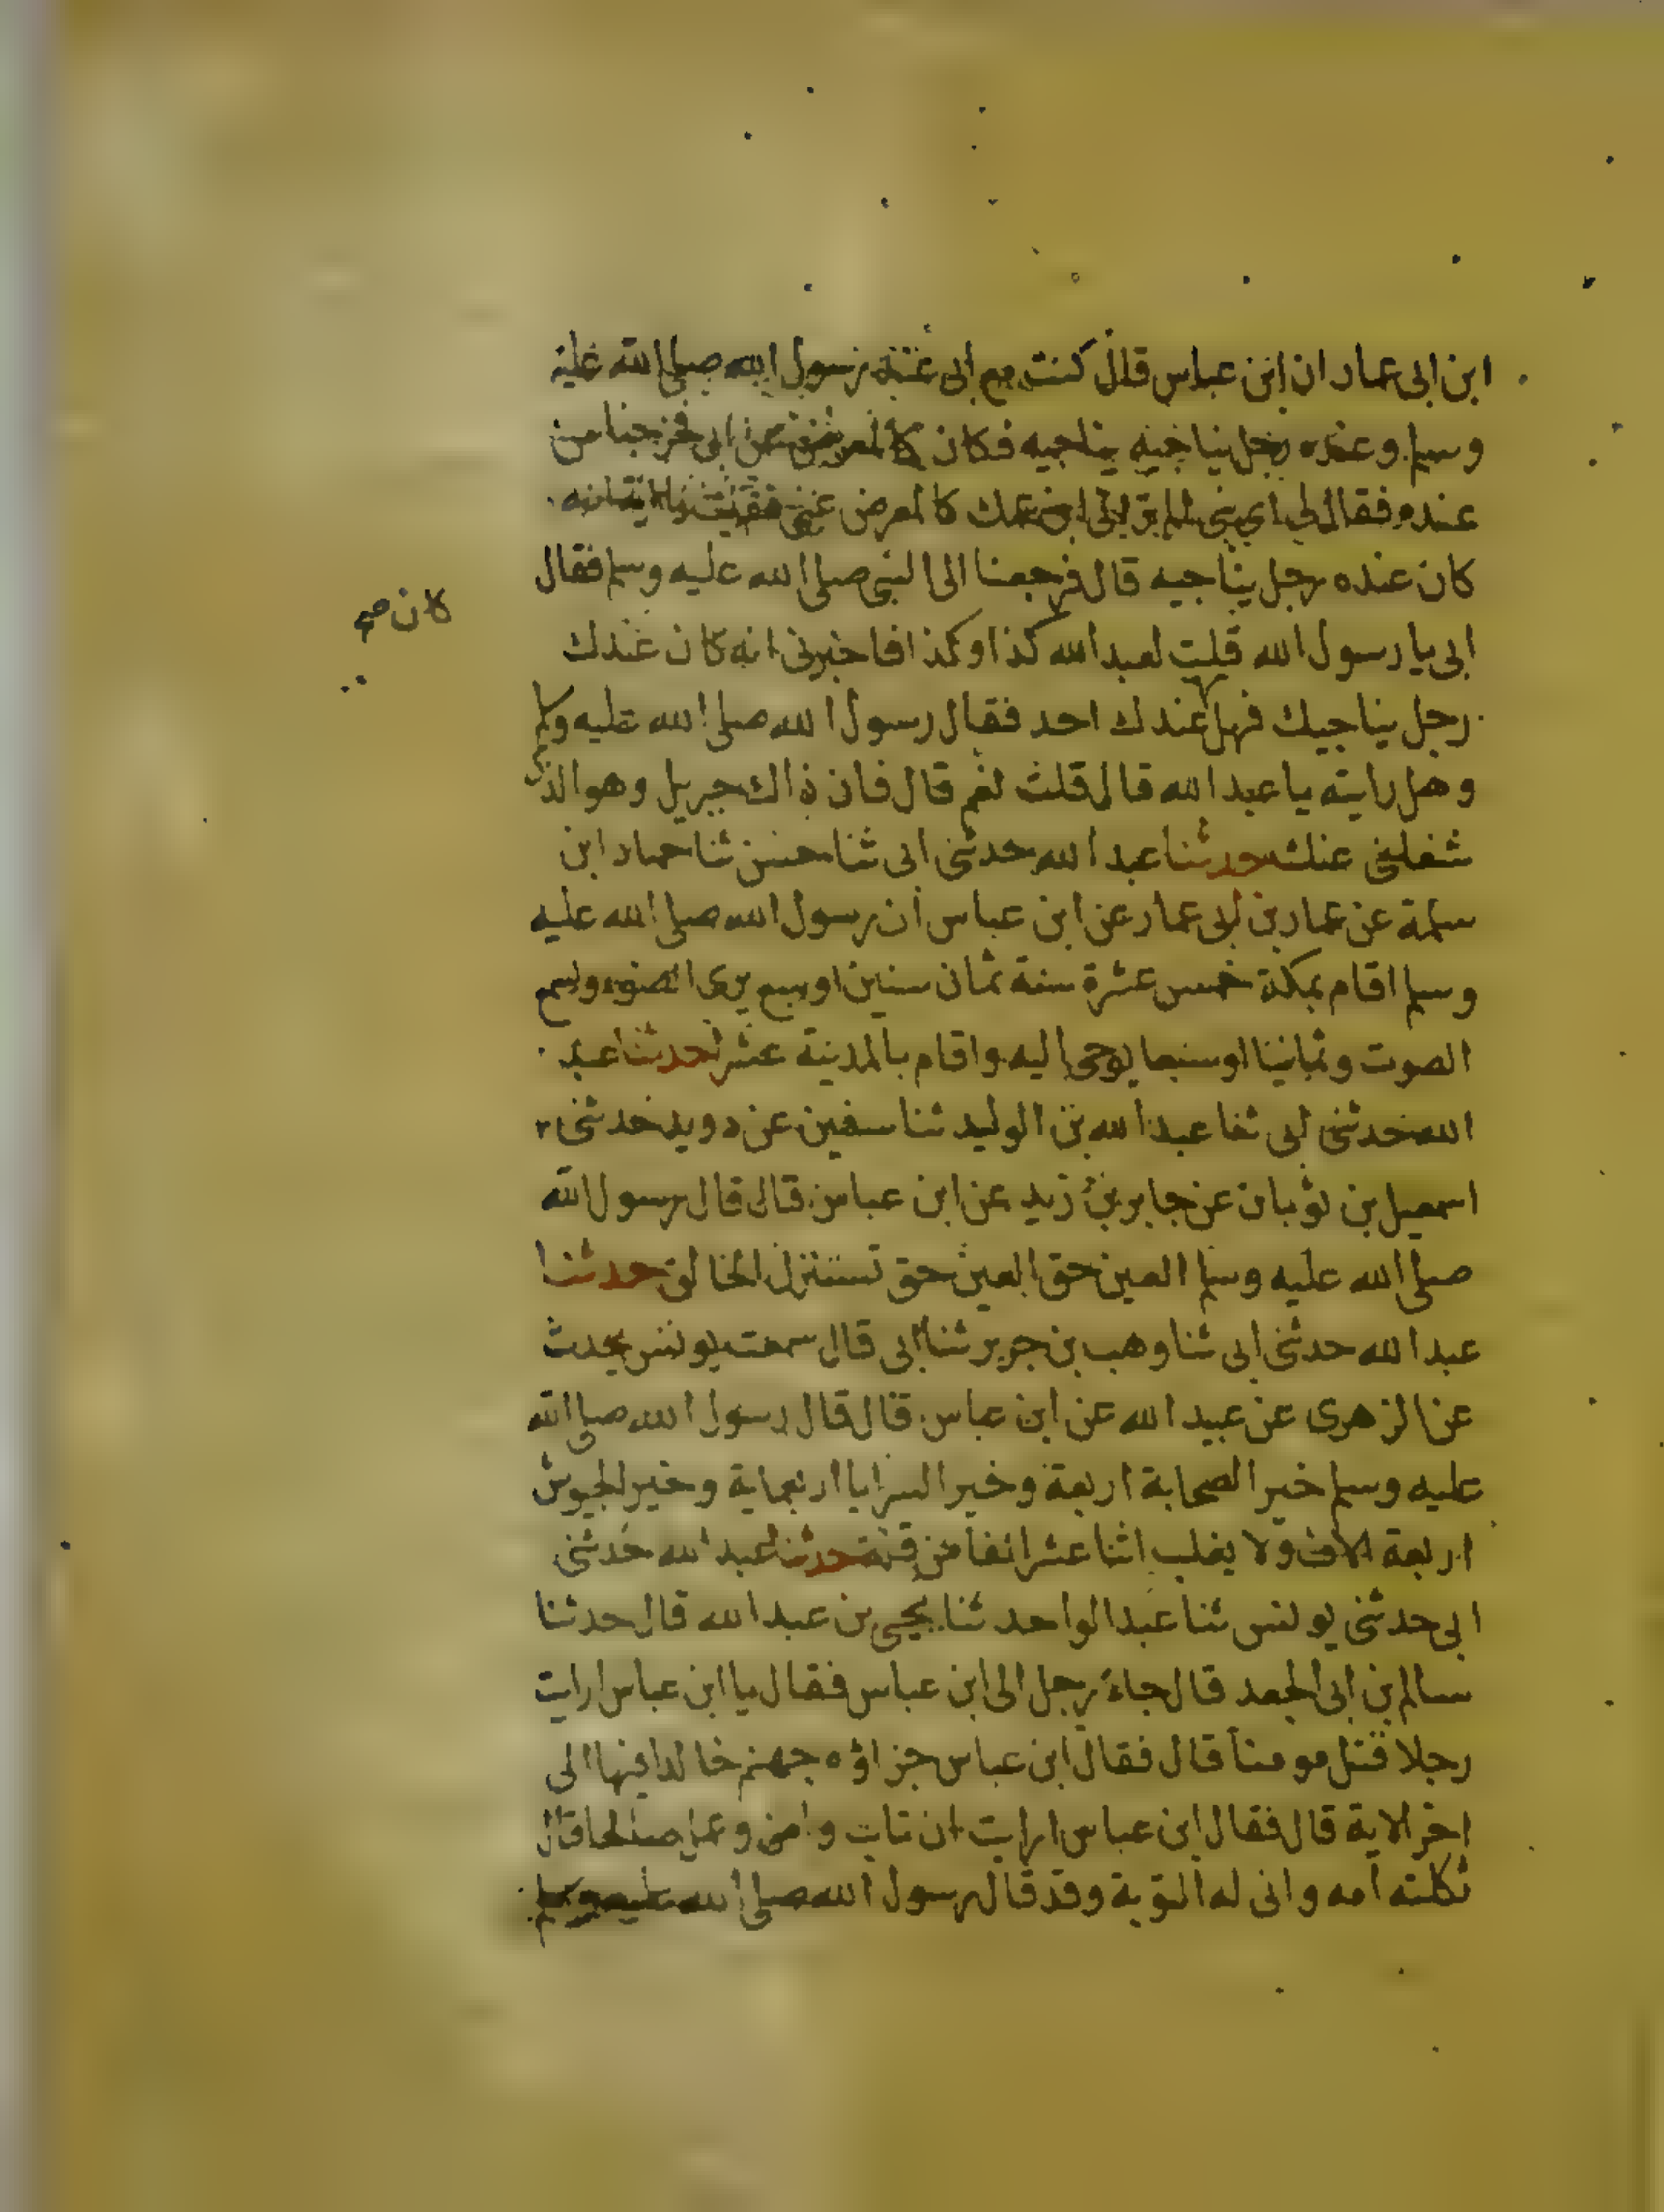 ابن ابى عمار ان ابن عباس قال كنت مع ابى عند رسول الله صلى الله عليه
وسلم وعنده رجل يناجيه يناجيه فكان كالمعرض عن ابى فخرجنا من
عنده فقال لى اى بنى الم تر الى ابن عمك كالمعرض عنى فقلت يا ابت انه
كان عنده رجل يناجيه قال فرجعنا الى النبى صلى الله عليه وسلم فقال
ابى يا رسول الله قلت لعبد الله كذا وكذا فاخبرنى انه كان عندك
رجل يناجيك فهل عندك احد فقال رسول الله صلى الله عليه وسلم
كان صح
وهل رايته يا عبد الله قال قلت نعم قال فان ذاك جبريل وهو الذى
شغلنى عنك حدثنا عبد الله حدثنى ابى ثنا حسن ثنا حماد ابن
سلمة عن عمار بن ابى عمار عن ابن عباس ان رسول الله صلى الله عليه
وسلم اقام بمكة خمس عشرة سنة ثمان سنين او سبع يرى الضوء ويسمع
الصوت وثمانيا او سبعا يوحى اليه واقام بالمدينة عشرا حدثنا عبد
الله حدثنى ابى ثنا عبد الله بن الوليد ثنا سفين عن دويد حدثنى
اسمعيل بن ثوبان عن جابر بن زيد عن ابن عباس قال قال رسول الله
صلى الله عليه وسلم العين حق العين حق تستنزل الحالق حدثنا
عبد الله حدثنى ابى ثنا وهب بن جرير ثنا ابى قال سمعت يونس يحدث
عن الزهرى عن عبيد الله عن ابن عباس قال قال رسول الله صلى الله
عليه وسلم خير الصحابة اربعة وخير السرايا اربعماية وخير الجيوش
اربعة الاف ولا يغلب اثنا عشر الفا من قلة حدثنا عبد الله حدثنى
ابى حدثنى يونس ثنا عبد الواحد ثنا يحيى بن عبد الله قال حدثنا
سالم بن ابى الجعد قال جاء رجل الى ابن عباس فقال يا ابن عباس ارايت
رجلا قتل مومنا قال فقال ابن عباس جزاؤه جهنم خالدا فيها الى
اخر الاية قال فقال ابن عباس ارايت ان تاب وامن وعمل صالحا قال
ثكلته امه وانى له التوبة وقد قال رسول الله صلى الله عليه وسلم